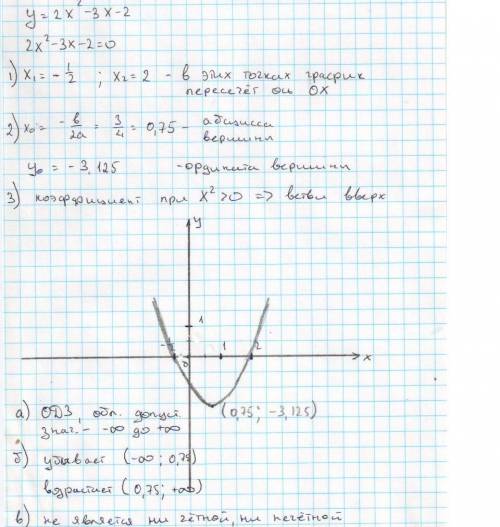 y = 2x² - 3x - 2
2x² - 3x - 2 = 0
1) x₁ = -1/2 ; x₂ = 2 - в этих точках график
пересечёт ось OX
2) x₀ = -в/2a = 3/4 = 0,75 - абсцисса
вершины
y₀ = -3,125 - ордината вершины
3) коэффициент при x² > 0 => ветви вверх
y
1
0 1 2 x
(0,75; -3,125)
а) ОДЗ, обл. допуст
знач. - -∞ до +∞
б) убывает (-∞; 0,75)
возрастает (0,75; +∞)
в) не является ни чётной, ни нечётной